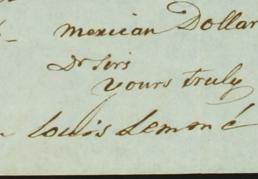 Mexican Dollar
Dr Sirs
Yours truly
Louis Lemoné